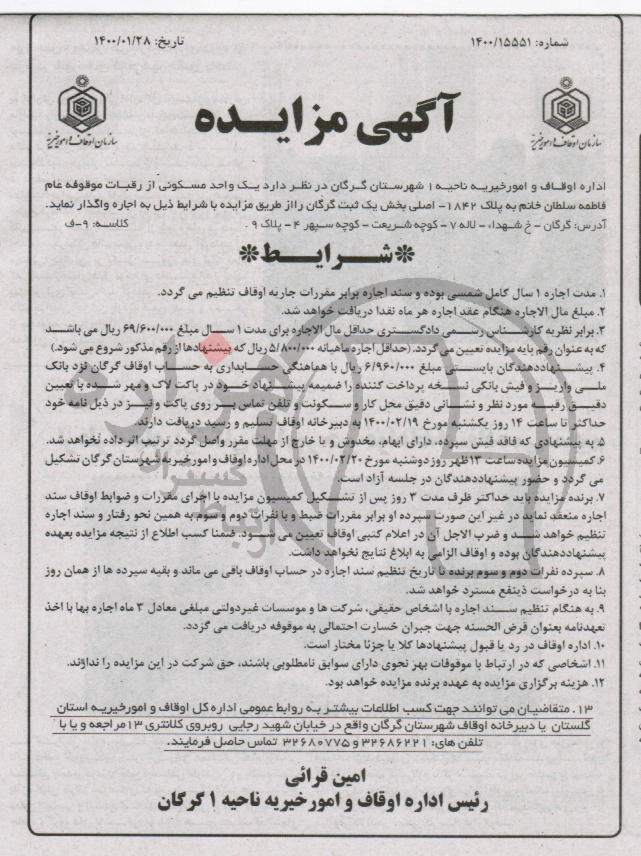 شماره: ۱۴۰۰/۱۵۵۵۱
تاریخ: ۱۴۰۰/۰۱/۲۸
آگهی مزایده
سازمان اوقاف و امور خیریه
سازمان اوقاف و امور خیریه
اداره اوقاف و امورخیریه ناحیه ۱ شهرستان گرگان در نظر دارد یک واحد مسکونی از رقبات موقوفه عام
فاطمه سلطان خانم به پلاک ۱۸۴۲- اصلی بخش یک ثبت گرگان رااز طریق مزایده با شرایط ذیل به اجاره واگذار نماید.
آدرس: گرگان - خ شهداء- لاله ۷ - کوچه شریعت - کوچه سپهر ۴- پلاک ۹ . کلاسه: ۹-ف
*شرایط*
۱. مدت اجاره ۱ سال کامل شمسی بوده و سند اجاره برابر مقررات جاریه اوقاف تنظیم می گردد.
۲. مبلغ مال الاجاره هنگام عقد اجاره هر ماه نقدا دریافت خواهد شد.
۳. برابر نظریه کارشناس رسمی دادگستری حداقل مال الاجاره برای مدت ۱ سال مبلغ ۶۹/۶۰۰/۰۰۰ ریال می باشد
که به عنوان رقم پایه مزایده تعیین می گردد. (حداقل اجاره ماهیانه ۵/۸۰۰/۰۰۰ ریال که پیشنهادها از رقم مذکور شروع می شود.)
۴. پیشنهاددهندگان بایستی مبلغ ۶/۹۶۰/۰۰۰ ریال با هماهنگی حسابداری به حساب اوقاف گرگان نزد بانک
ملی واریز و فیش بانکی نسخه پرداخت کننده را ضمیمه پیشنهاد خود در پاکت لاک و مهر شده با تعیین
دقیق رقبه مورد نظر و نشانی دقیق محل کار و سکونت و تلفن تماس بر روی پاکت و نیز در ذیل نامه خود
حداکثر تا ساعت ۱۴ روز یکشنبه مورخ ۱۴۰۰/۰۲/۱۹ به دبیرخانه اوقاف تسلیم و رسید دریافت دارند.
۵. به پیشنهادی که فاقد فیش سپرده، دارای ابهام، مخدوش و یا خارج از مهلت مقرر واصل گردد ترتیب اثر داده نخواهد شد.
۶. کمیسیون مزایده ساعت ۱۳ ظهر روز دوشنبه مورخ ۱۴۰۰/۰۲/۲۰ در محل اداره اوقاف و امور خیریه شهرستان گرگان تشکیل
می گردد و حضور پیشنهاددهندگان در جلسه آزاد است.
۷. برنده مزایده باید حداکثر ظرف مدت ۳ روز پس از تشکیل کمیسیون مزایده با اجرای مقررات و ضوابط اوقاف سند
اجاره منعقد نماید در غیر این صورت سپرده او برابر مقررات ضبط و با نفرات دوم و سوم به همین نحو رفتار و سند اجاره
تنظیم خواهد شد و ضرب الاجل آن در اعلام کتبی اوقاف تعیین می شود. ضمنا کسب اطلاع از نتیجه مزایده بعهده
پیشنهاددهندگان بوده و اوقاف الزامی به ابلاغ نتایج نخواهد داشت.
۸. سپرده نفرات دوم و سوم برنده تا تاریخ تنظیم سند اجاره در حساب اوقاف باقی می ماند و بقیه سپرده ها از همان روز
بنا به درخواست ذینفع مسترد خواهد شد.
۹. به هنگام تنظیم سند اجاره با اشخاص حقیقی، شرکت ها و موسسات غیردولتی مبلغی معادل ۳ ماه اجاره بها با اخذ
تعهدنامه بعنوان قرض الحسنه جهت جبران خسارت احتمالی به موقوفه دریافت می گردد.
۱۰. اداره اوقاف در رد یا قبول پیشنهادها کلا یا جزئا مختار است.
۱۱. اشخاصی که در ارتباط با موقوفات بهر نحوی دارای سوابق نامطلوبی باشند، حق شرکت در این مزایده را نداوند.
۱۲. هزینه برگزاری مزایده به عهده برنده مزایده خواهد بود.
۱۳. متقاضیان می توانند جهت کسب اطلاعات بیشتر به روابط عمومی اداره کل اوقاف و امورخیریه استان
گلستان یا دبیرخانه اوقاف شهرستان گرگان واقع در خیابان شهید رجایی روبروی کلانتری ۱۳ مراجعه و یا با
تلفن های: ۳۲۶۸۶۲۲۱ و ۳۲۶۸۰۷۷۵ تماس حاصل فرمایند.
امین قرائی
رئیس اداره اوقاف و امورخیریه ناحیه ۱ گرگان